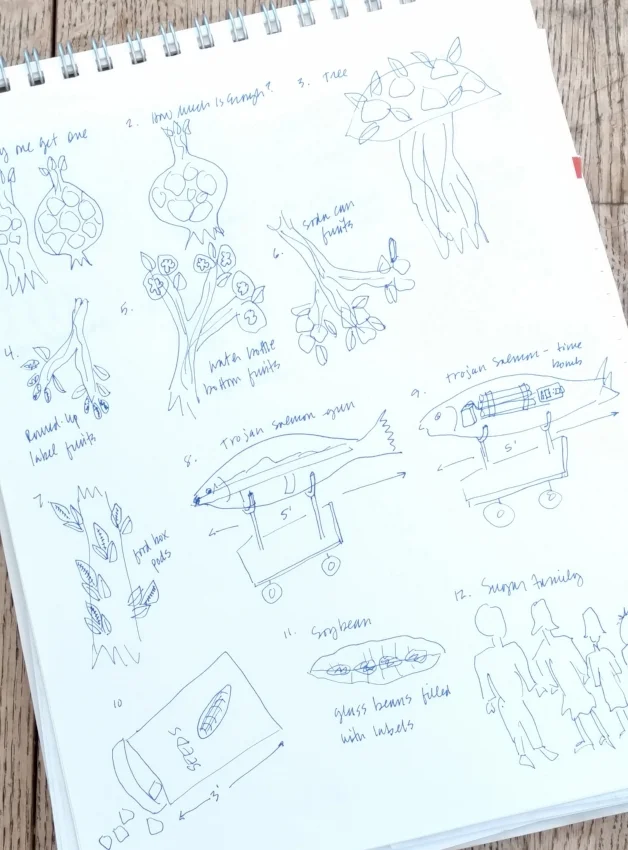 y one get one
2. How much is enough?
3. Tree
4.
Round-up
label fruits
5.
water bottle
bottom fruits
6.
soda can
fruits
7.
food box
pods
8. trojan salmon gun
5'
9. trojan salmon - time
bomb
5'
10
SEEDS
3'
11. Soybean
glass beans filled
with labels
12. Sugar Family